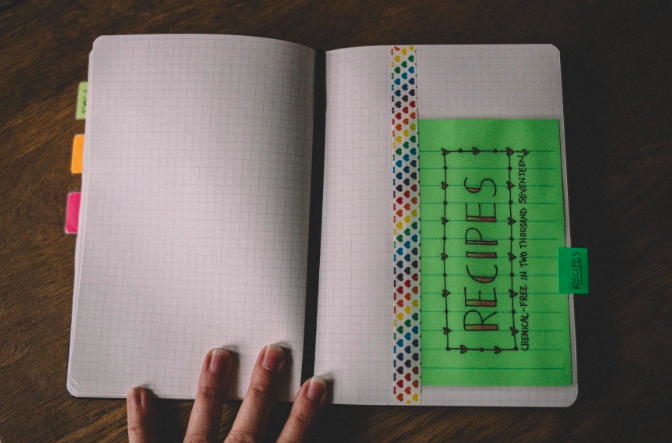 RECIPES
CHEMICAL-FREE IN TWO THOUSAND SEVENTEEN!
RECIPES